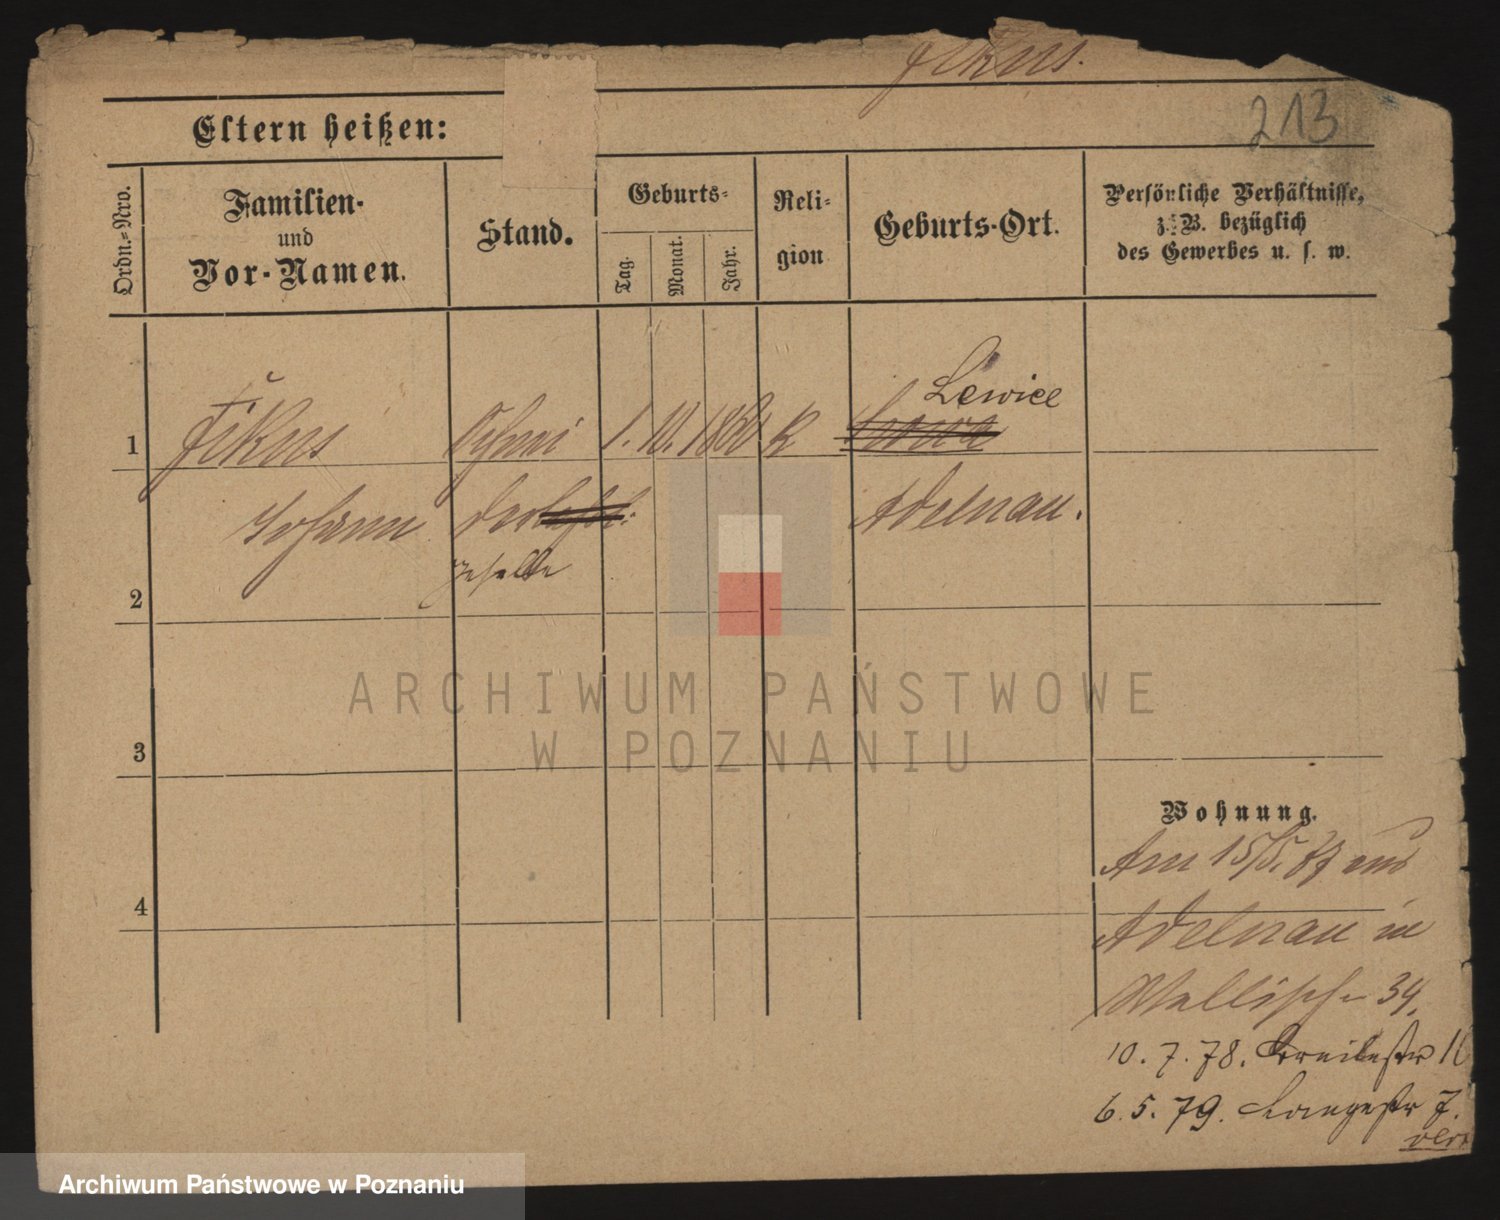 Fikus.
213
Eltern heißen:
Ordn.=Nro.
Familien-
und
Vor-Namen.
Stand.
Geburts-
Tag.
Monat.
Jahr.
Reli-
gion
Geburts-Ort.
Persönliche Verhältnisse,
z. B. bezüglich
des Gewerbes u. s. w.
1
Fikus
1. 11. 1860
K
Lewice
Johann
Adelnau.
geselle
2
3
4
Wohnung.
Am 15/5. 77 aus
Adelnau in
Wallisch- 34.
10. 7. 78. Breitestr
6. 5. 79. Langestr 7.
ARCHIWUM PAŃSTWOWE
W POZNANIU
Archiwum Państwowe w Poznaniu